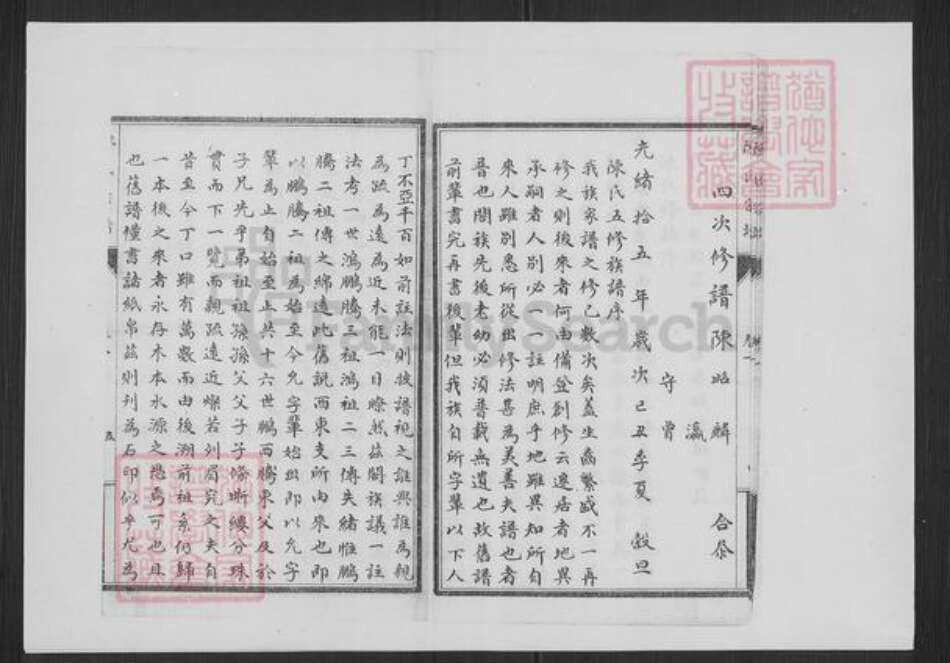 四次修譜陳昭麟 瀛 守曾 合恭
光緒拾五年歲次己丑季夏 穀旦
陳氏五修族譜序
我族家譜之修已數次矣蓋生齒繁盛不一再
修之則後來者何由備登創修云遷居者地異
承嗣者人別必一一註明庶乎地雖異知所自
來人雖別悉所從出修法甚為美善夫譜也者
普也閤族先後老幼必須普載無遺也故舊譜
前輩書完再書後輩但我族自所字輩以下人
丁不亞千百如前註法則披譜視之誰與誰為親
為疏為遠為近未能一目瞭然茲閤族議一註
法考一世鴻鵬騰三祖鴻祖二三傳失緒惟鵬
騰二祖傳之綿遠此舊說西東支所由來也即
以鵬騰二祖為始至今允字輩始出即以允字
輩為止自始至止共十六世鵬西騰東父及於
子兄先乎弟祖祖孫孫父父子子條晰縷分珠
貫而下一覽而親疏遠近燦若列眉究之夫自
昔至今丁口雖有萬數而由後溯前祖系仍歸
一本後之來者永存木本水源之想焉可也且
也舊譜僅書諸紙帛茲則刊為石印似乎尤為
FamilySearch